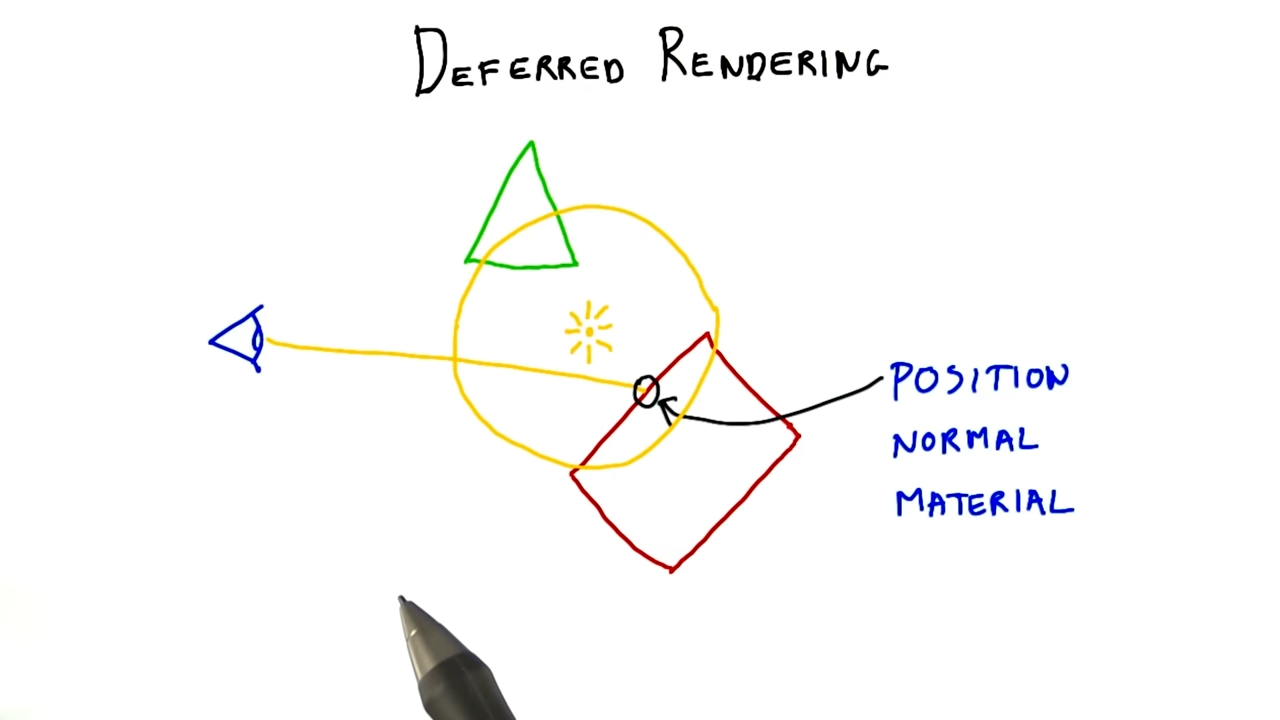 DEFERRED RENDERING
POSITION
NORMAL
MATERIAL